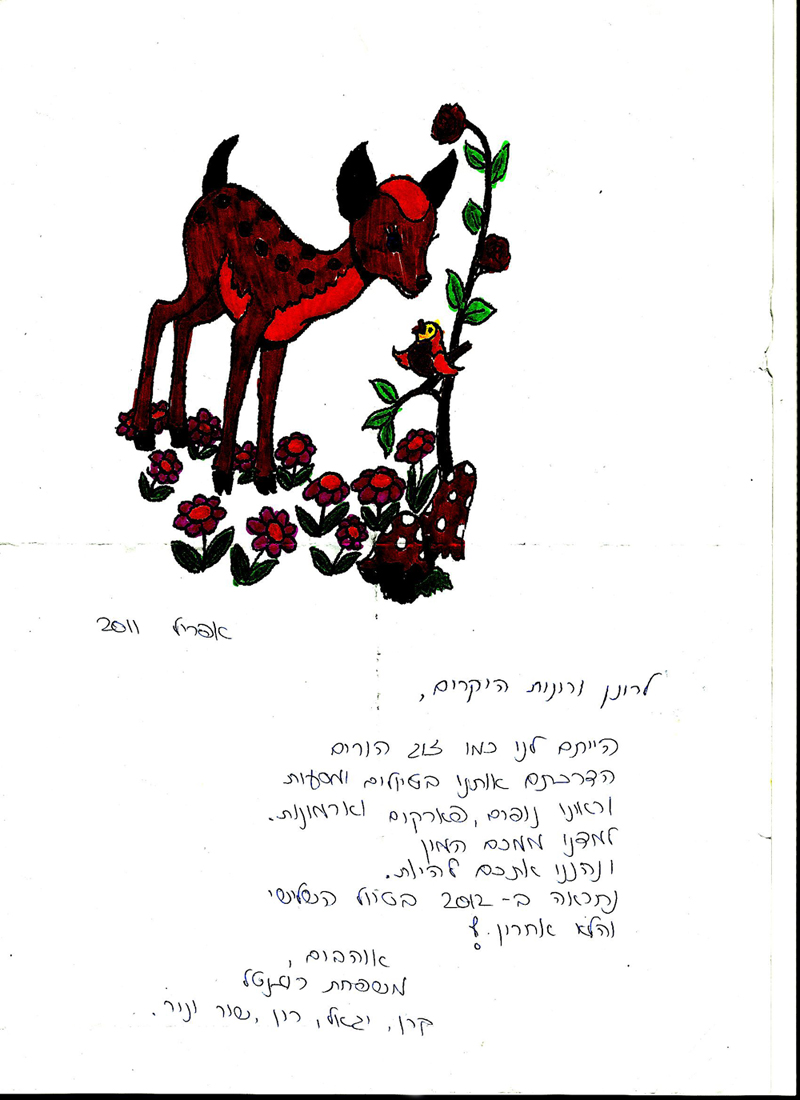 אפריל 2011
לרונן ורונות היקרים,
הייתם לנו כמו זוג הורים
הדרכתם אותנו בטיולים ומסעות
וראינו נופים, פארקים וארמונות.
למדנו מכם המון
ונהננו אתכם להיות.
נתראה ב- 2012 בטיול השלישי
והלא אחרון.!
אוהבים,
משפחת רוזנטל
קרן, יגאל, רון, שיר וניר.